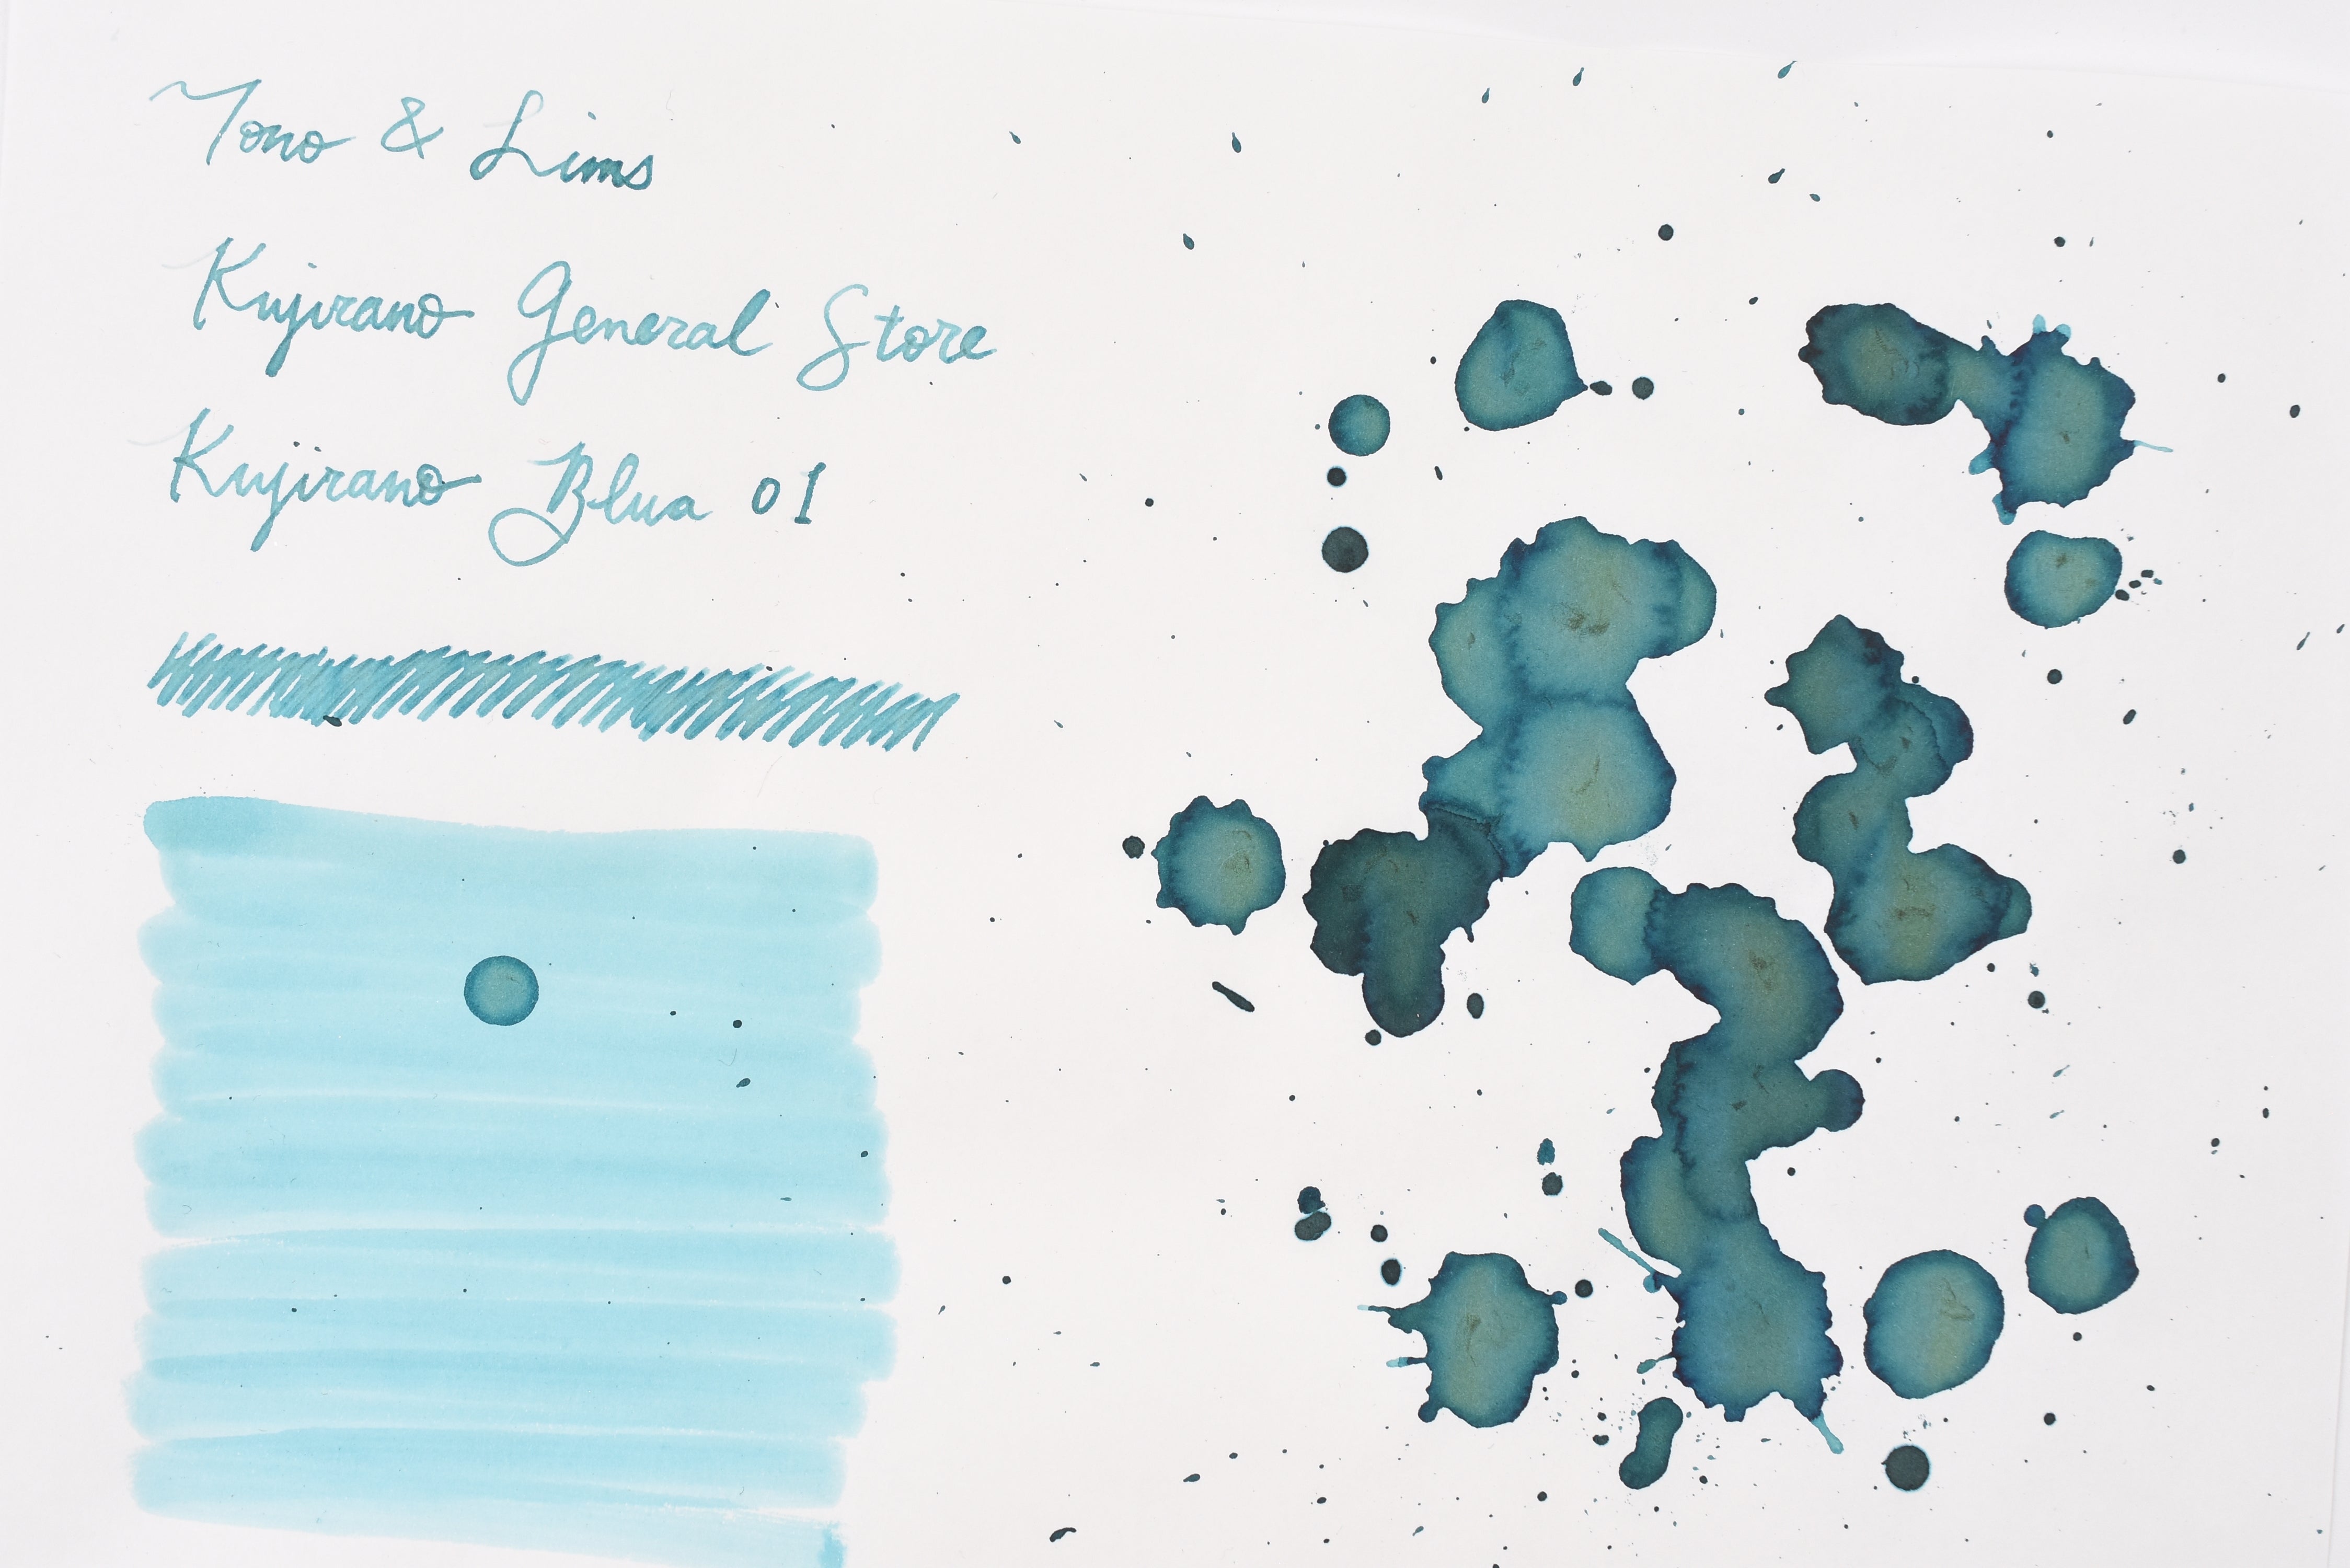 Tono & Lims
Kujirano General Store
Kujirano Blua 01